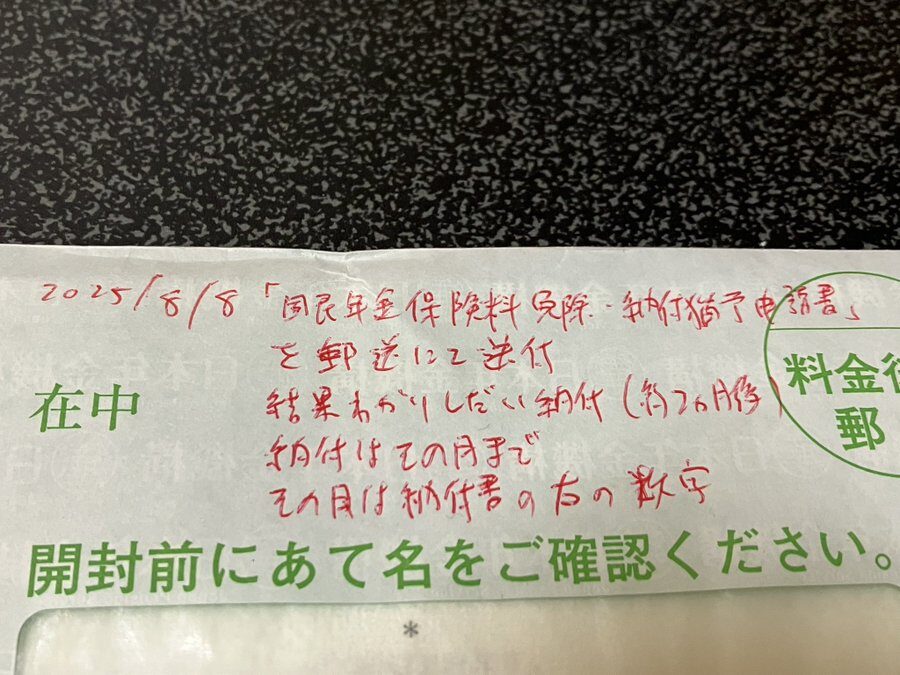 2025/8/8 「国民年金保険料免除・納付猶予申請書」
を郵送にて送付
結果わかりしだい納付(約2ヵ月後)
納付はその月まで
その月は納付書の右の数字
在中
料金後
郵
開封前にあて名をご確認ください。
*